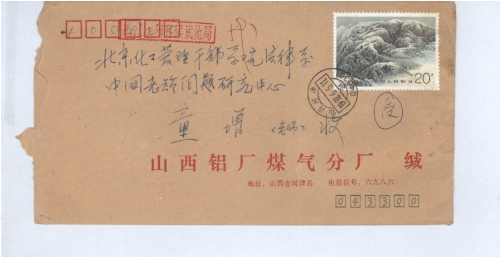 北京化工管理干部学院法律系
中国老龄问题研究中心
童增（老师）收
受
20分
中国人民邮政
山西铝厂煤气分厂 缄
地址：山西省河津县 电报挂号：六九八六
043300